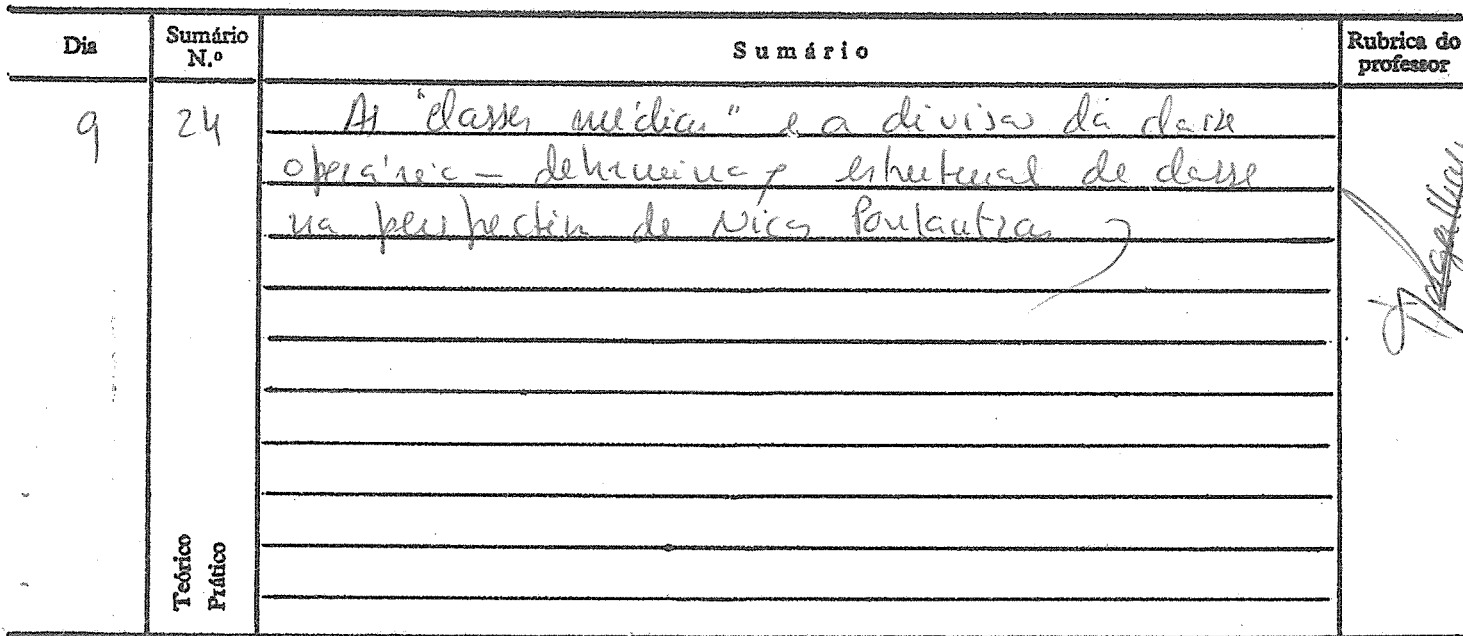 Dia
Sumário N.º
Sumário
Rubrica do professor
9
24
As "classes médias" e a divisão da classe
operária – determinação estrutural de classe
na perspectiva de Nicos Poulantzas
Teórico
Prático